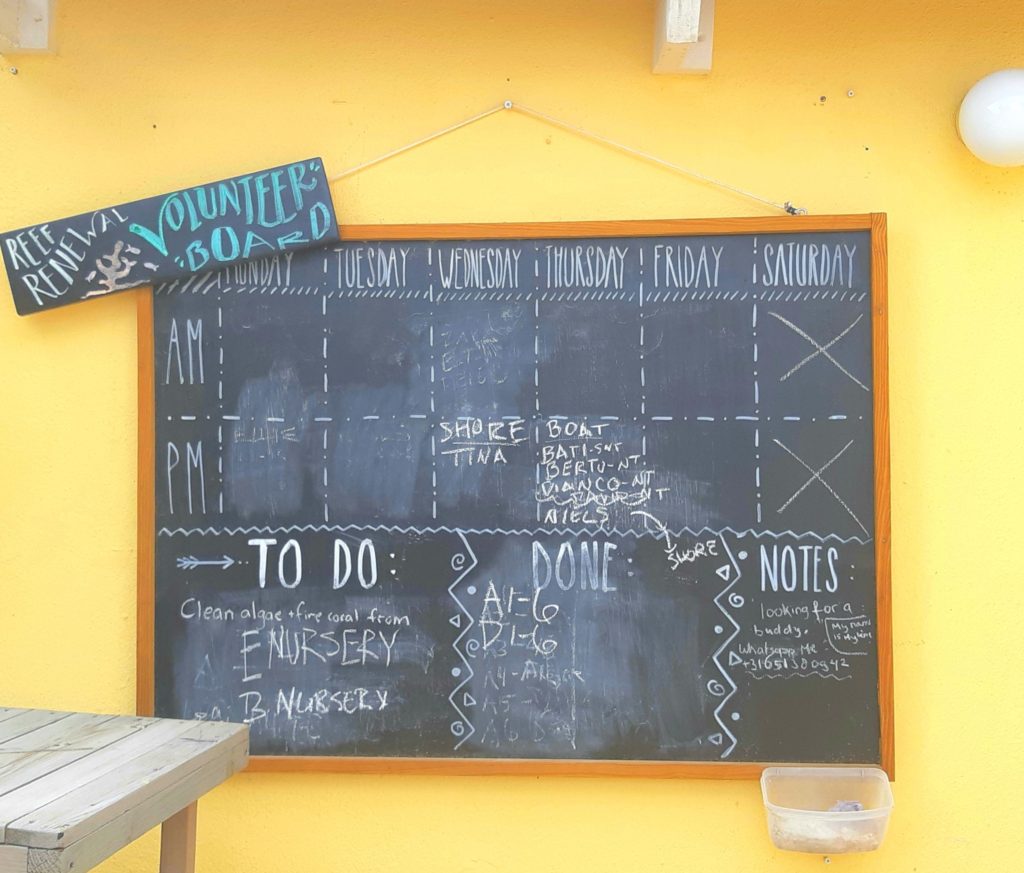 REEF
RENEWAL
VOLUNTEER
BOARD
MONDAY TUESDAY WEDNESDAY THURSDAY FRIDAY SATURDAY
AM
PM
SHORE
TINA
BOAT
BATI-SNT
BERTO-NT
VIANCO-NT
NIELS
SHORE
TO DO:
Clean algae + fire coral from
E NURSERY
B NURSERY
DONE:
A1-6
B1-6
NOTES:
looking for a
buddy.
Whatsapp Me
My name